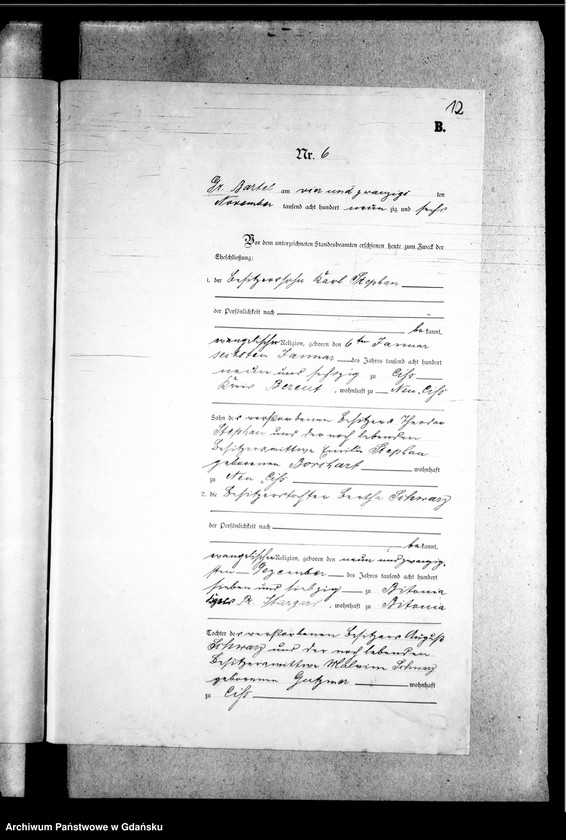 12
B.
Nr. 6
Gr. Bartel am vier und zwanzigsten
November tausend acht hundert neun zig und sechs
Vor dem unterzeichneten Standesbeamten erschienen heute zum Zweck der
Eheschließung:
1. der Besitzerssohn Karl Stephan
der Persönlichkeit nach
bekannt,
evangelischer Religion, geboren den 6ten Januar
sechsten Januar des Jahres tausend acht hundert
neun und sechzig zu Ciss
Kreis Berent, wohnhaft zu Neu Ciss
Sohn des verstorbenen Besitzers Theodor
Stephan und der noch lebenden
Besitzerswittwe Emilie Stephan
geborenen Borchart wohnhaft
zu Neu Ciss
2. die Besitzerstochter Bertha Schwarz
der Persönlichkeit nach
bekannt,
evangelischer Religion, geboren den neun und zwanzig
sten Dezember des Jahres tausend acht hundert
sieben und siebzig zu Bitonia
Kreis Pr. Stargard, wohnhaft zu Bitonia
Tochter des verstorbenen Besitzers August
Schwarz und der noch lebenden
Besitzerswittwe Malwine Schwarz
geborenen wohnhaft
zu Ciss
Archiwum Państwowe w Gdańsku